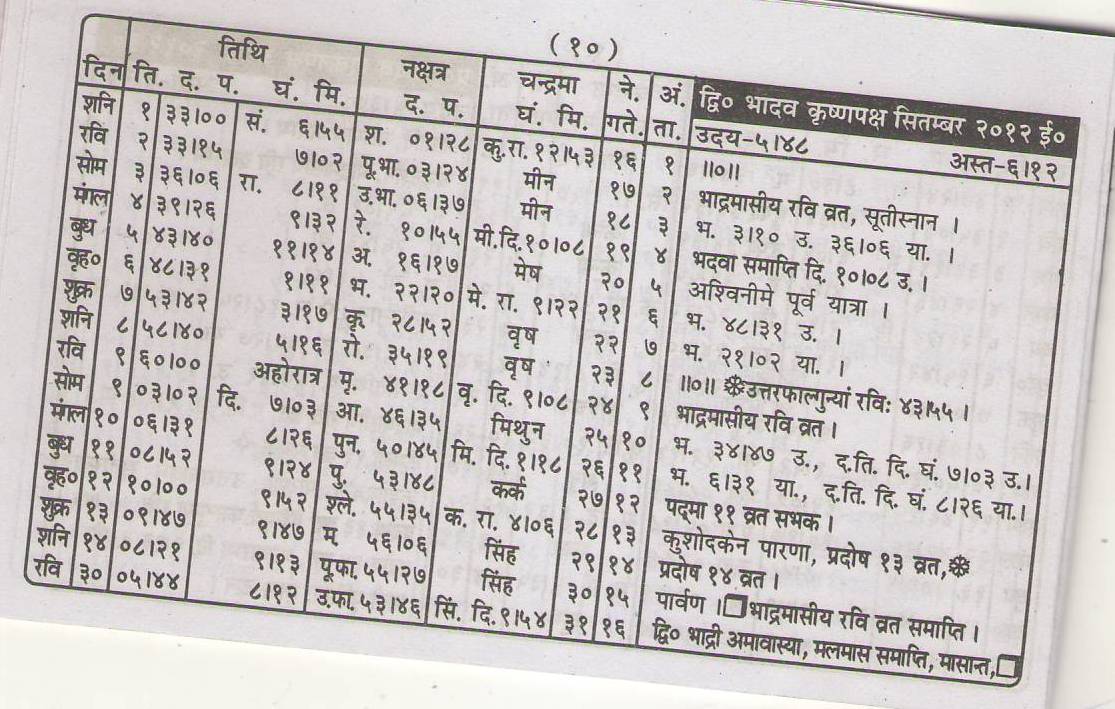 (१०)
तिथि नक्षत्र चन्द्रमा ने. अं. द्वि० भादव कृष्णपक्ष सितम्बर २०१२ ई०
दिन ति. द. प. घं. मि. द. प. घं. मि. गते. ता. उदय-५।४८ अस्त-६।१२
शनि १ ३३।०० सं. ६।५५ श. ०१।२८ कु.रा. १२।५३ १६ १ ॥०॥
रवि २ ३३।१५ ७।०२ पू.भा. ०३।२४ मीन १७ २ भाद्रमासीय रवि व्रत, सूतीस्नान ।
सोम ३ ३६।०६ रा. ८।११ उ.भा. ०६।३७ मीन १८ ३ भ. ३।१० उ. ३६।०६ या. ।
मंगल ४ ३९।२६ ९।३२ रे. १०।५५ मी.दि. १०।०८ १९ ४ भदवा समाप्ति दि. १०।०८ उ. ।
बुध ५ ४३।४० ११।१४ अ. १६।१७ मेष २० ५ अश्विनीमे पूर्व यात्रा ।
वृह० ६ ४८।३१ १।११ भ. २२।२० मे. रा. ९।२२ २१ ६ भ. ४८।३१ उ. ।
शुक्र ७ ५३।४२ ३।१७ कृ. २८।५२ वृष २२ ७ भ. २१।०२ या.
शनि ८ ५८।४० ५।१६ रो. ३५।१९ वृष २३ ८ ॥०॥ ❉उत्तरफाल्गुन्यां रविः ४३।५५
रवि ९ ६०।०० अहोरात्र मृ. ४१।१८ वृ. दि. ९।०८ २४ ९ भाद्रमासीय रवि व्रत ।
सोम ९ ०३।०२ दि. ७।०३ आ. ४६।३५ मिथुन २५ १० भ. ३४।४७ उ. द.ति. दि. घं. ७।०३ उ.।
मंगल १० ०६।३१ ८।२६ पुन. ५०।४५ मि. दि. १।१८ २६ ११ भ. ६।३१ या., द.ति. दि. घं. ८।२६ या.।
बुध ११ ०८।५२ ९।२४ पु. ५३।४८ कर्क २७ १२ पद्मा ११ व्रत सभक ।
वृह० १२ १०।०० ९।५२ श्ले. ५५।३५ क. रा. ४।०६ २८ १३ कुशोदकेन पारणा, प्रदोष १३ व्रत,❉
शुक्र १३ ०९।४७ ९।४७ म. ५६।०६ सिंह २९ १४ प्रदोष १४ व्रत ।
शनि १४ ०८।२१ ९।१३ पू.फा. ५५।२७ सिंह ३० १५ पार्वण ।□भाद्रमासीय रवि व्रत समाप्ति ।
रवि ३० ०५।४४ ८।१२ उ.फा. ५३।४६ सिं. दि. ९।५४ ३१ १६ द्वि० भाद्री अमावास्या, मलमास समाप्ति, मासान्त,□